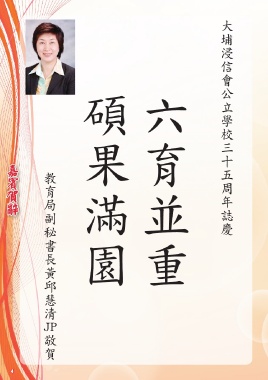 大埔浸信會公立學校三十五周年誌慶
六育並重
碩果滿園
教育局副秘書長黃邱慧清JP敬賀
4